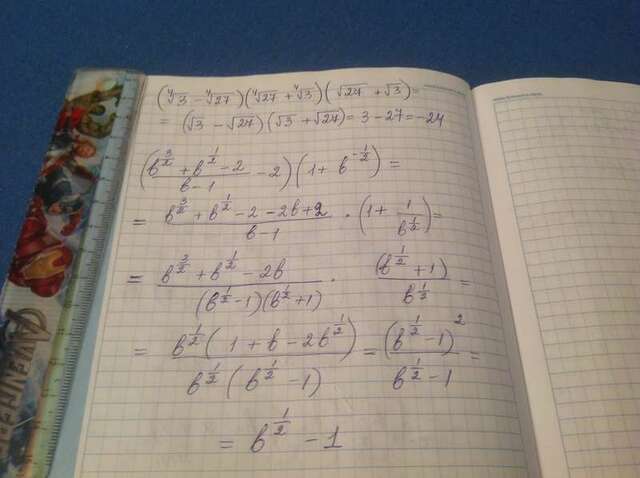 (⁴√3 - ⁴√27)(⁴√27 + ⁴√3)(√27 + √3) =
= (√3 - √27)(√3 + √27) = 3 - 27 = -24
((b^(3/2) + b^(1/2) - 2)/(b - 1) - 2)(1 + b^(-1/2)) =
= (b^(3/2) + b^(1/2) - 2 - 2b + 2)/(b - 1) · (1 + 1/b^(1/2)) =
= (b^(3/2) + b^(1/2) - 2b)/((b^(1/2) - 1)(b^(1/2) + 1)) · (b^(1/2) + 1)/b^(1/2) =
= b^(1/2)(1 + b - 2b^(1/2))/(b^(1/2)(b^(1/2) - 1)) = (b^(1/2) - 1)^2/(b^(1/2) - 1) =
= b^(1/2) - 1
AVENGERS